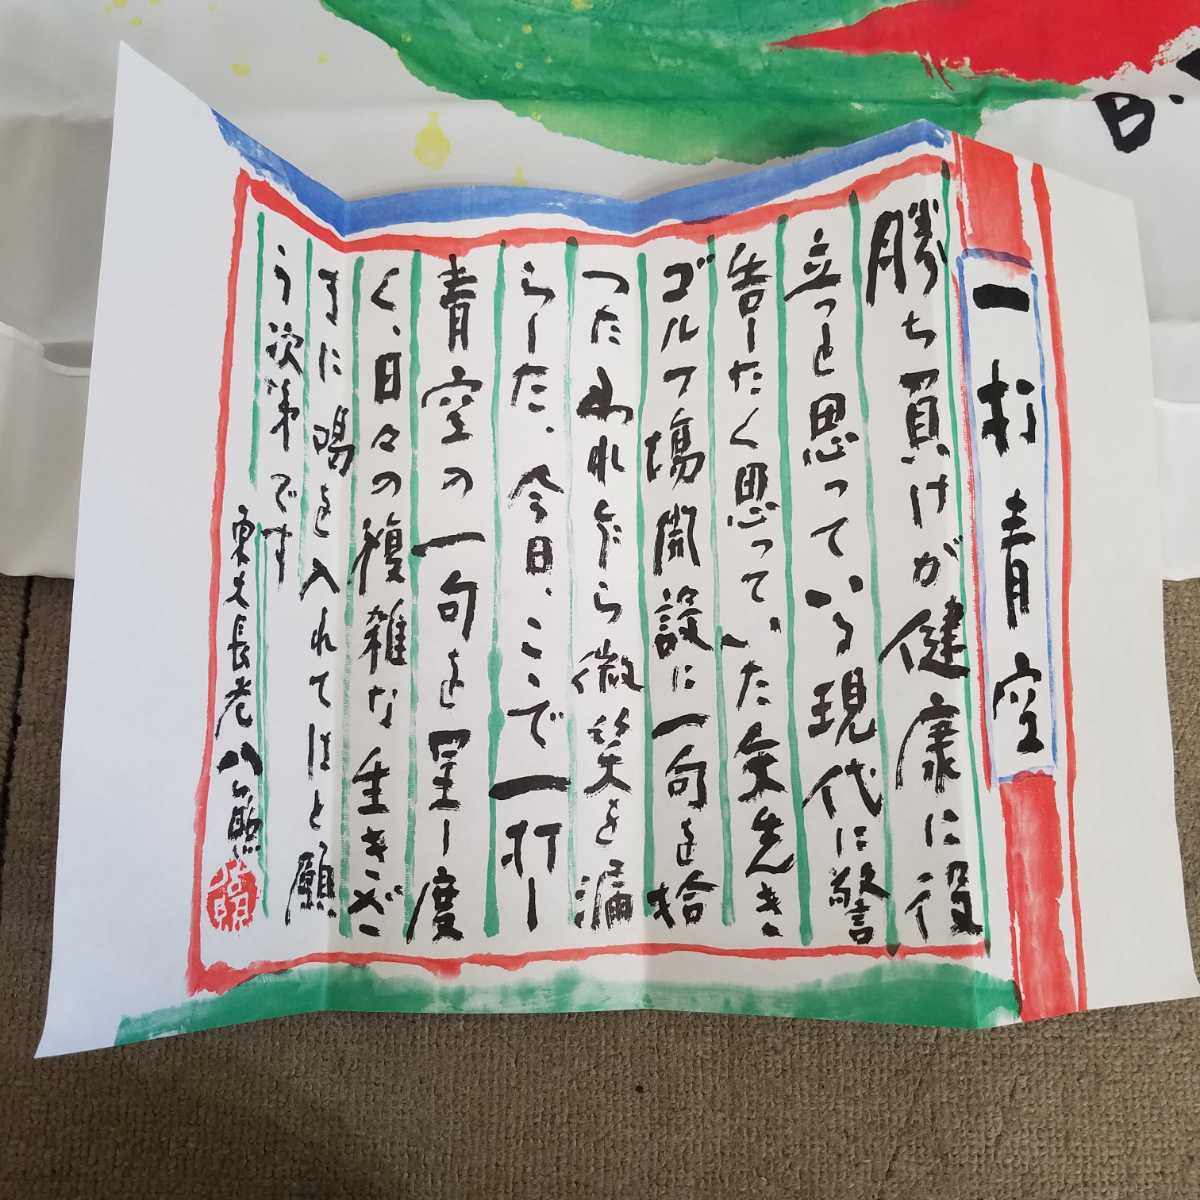 一打青空
勝ち負けが健康に役
立つと思っている現代に警
告したく思っていた矢先き
ゴルフ場開設に一句を拾
つたわれながら微笑を漏
らした、今日、ここで一打し
青空の一句を呈し度
く、日々の複雑な生きざ
まに陽を入れてはと願
う次第です
東大長老 公照
B.